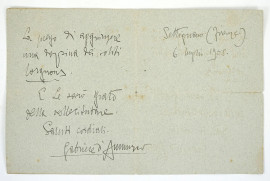 Settignano (Firenze)
6 luglio 1908.
La prego di aggiungere
una dozzina dei soliti
lorgnons.
E Le sarò grato
della sollecitudine
Saluti cordiali.
Gabriele d'Annunzio